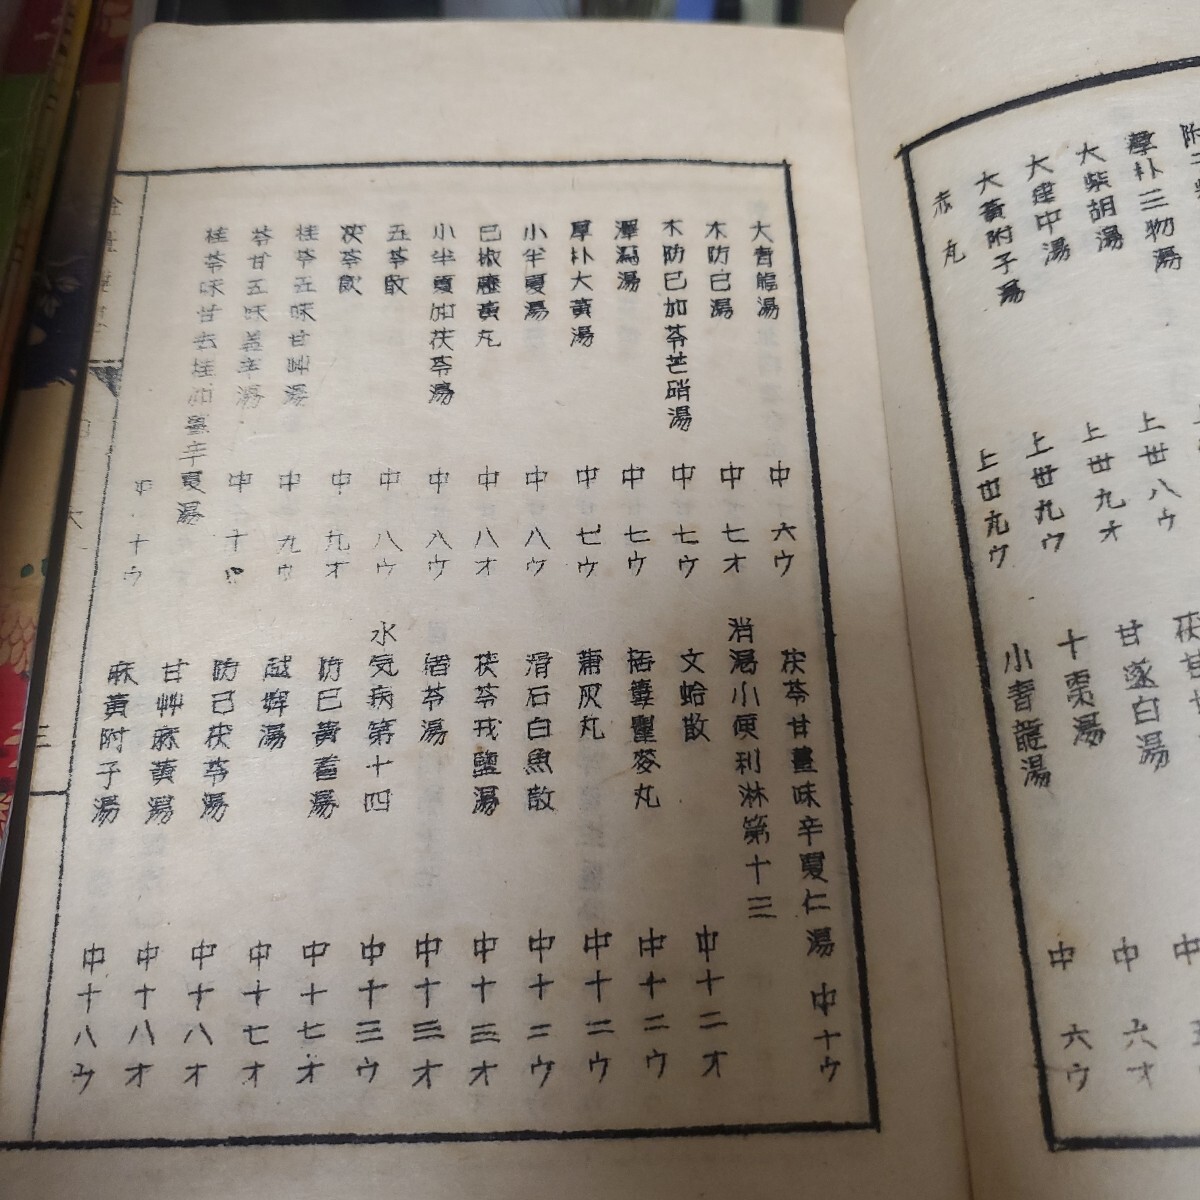 附子
厚朴三物湯
大柴胡湯
大建中湯
大黃附子湯
赤丸
上丗八ウ
上丗九オ
上丗九ウ
上丗九ウ
茯苓甘
甘遂白湯
十棗湯
小青龍湯
中
中 六オ
中 六ウ
大青龍湯 中 六ウ
木防已湯 中 七オ
木防已加苓芒硝湯 中 七ウ
澤瀉湯 中 七ウ
厚朴大黃湯 中 七ウ
小半夏湯 中 八ウ
已椒藶黃丸 中 八オ
小半夏加茯苓湯 中 八ウ
五苓散 中 八ウ
茯苓飮 中 九オ
桂苓五味甘艸湯 中 九ウ
苓甘五味姜辛湯 中 十オ
桂苓味甘去桂加薑辛夏湯 中 十ウ
茯苓甘薑味辛夏仁湯 中十ウ
消渇小便利淋第十三
文蛤散 中十二オ
栝蔞瞿麥丸 中十二ウ
蒲灰丸 中十二ウ
滑石白魚散 中十二ウ
茯苓戎鹽湯 中十三オ
猪苓湯 中十三オ
水気病第十四 中十三ウ
防已黃耆湯 中十七オ
越婢湯 中十七オ
防已茯苓湯 中十八オ
甘艸麻黃湯 中十八オ
麻黃附子湯 中十八ウ
三